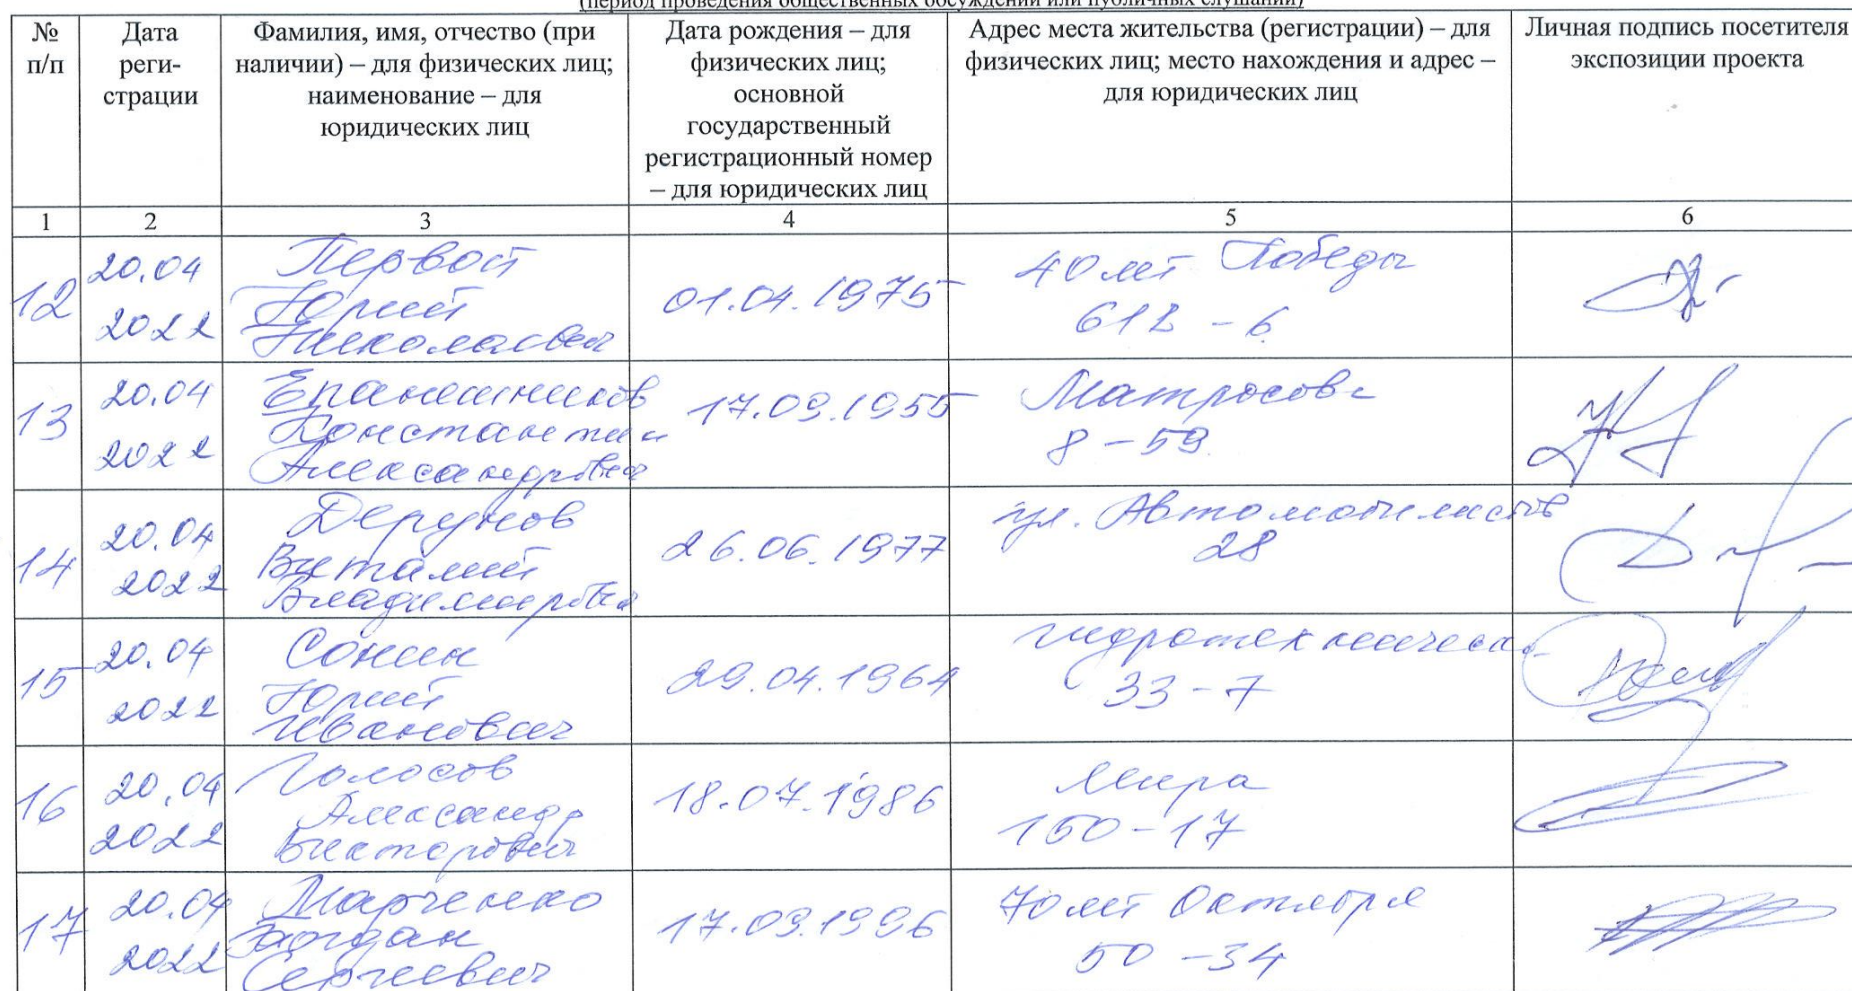 (период проведения общественных обсуждений или публичных слушаний)
№ п/п
Дата реги-
страции
Фамилия, имя, отчество (при
наличии) – для физических лиц;
наименование – для
юридических лиц
Дата рождения – для
физических лиц;
основной
государственный
регистрационный номер
– для юридических лиц
Адрес места жительства (регистрации) – для
физических лиц; место нахождения и адрес –
для юридических лиц
Личная подпись посетителя
экспозиции проекта
1 2 3 4 5 6
12
20.04
2022
Первой
Юрий
Николаевич
01.04.1975
40 лет Победы
61В - 6
13
20.04
2022
Епанешников
Константин
Александрович
17.09.1955
Матросова
8 - 59
14
20.04
2022
Дерунов
Виталий
Владимирович
26.06.1977
ул. Автомобилистов
28
15
20.04
2022
Сонин
Юрий
Иванович
29.04.1964
гидротехническ
33 - 7
16
20.04
2022
Голосов
Александр
Викторович
18.07.1986
Мира
150 - 17
17
20.04
2022
Марченко
Богдан
Сергеевич
17.09.1996
70 лет Октября
50 - 34